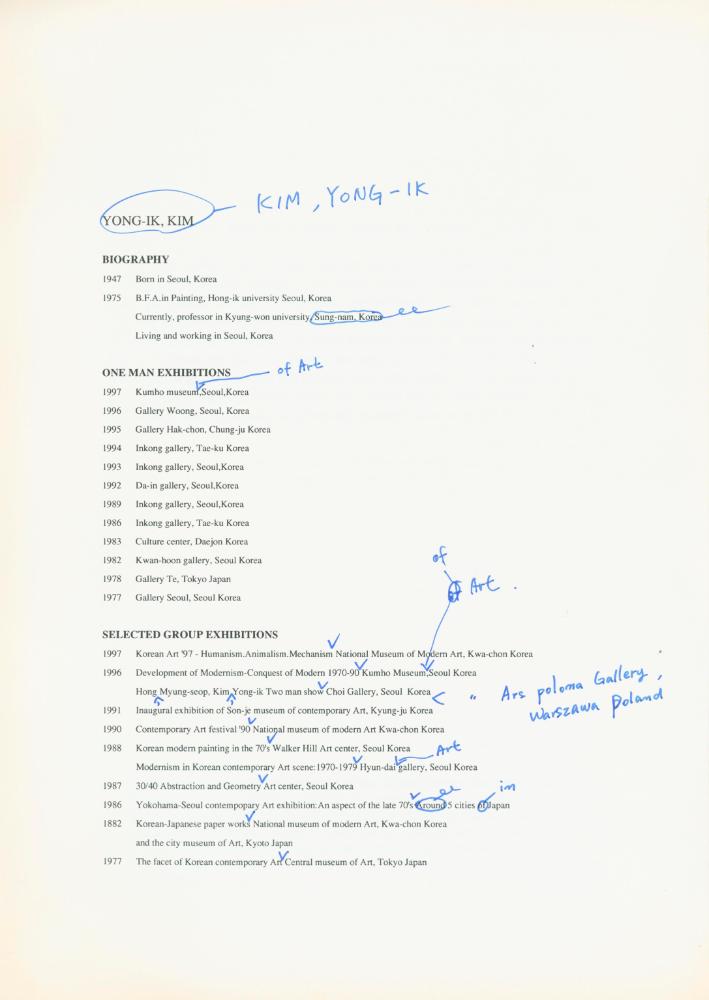 KIM, YONG-IK
YONG-IK, KIM
BIOGRAPHY
1947 Born in Seoul, Korea
1975 B.F.A.in Painting, Hong-ik university Seoul, Korea
Currently, professor in Kyung-won university, Sung-nam, Korea ee
Living and working in Seoul, Korea
ONE MAN EXHIBITIONS of Art
1997 Kumho museum,Seoul,Korea
1996 Gallery Woong, Seoul, Korea
1995 Gallery Hak-chon, Chung-ju Korea
1994 Inkong gallery, Tae-ku Korea
1993 Inkong gallery, Seoul,Korea
1992 Da-in gallery, Seoul,Korea
1989 Inkong gallery, Seoul,Korea
1986 Inkong gallery, Tae-ku Korea
1983 Culture center, Daejon Korea
1982 Kwan-hoon gallery, Seoul Korea
1978 Gallery Te, Tokyo Japan
1977 Gallery Seoul, Seoul Korea
of
Art .
SELECTED GROUP EXHIBITIONS
1997 Korean Art '97 - Humanism.Animalism.Mechanism National Museum of Modern Art, Kwa-chon Korea
1996 Development of Modernism-Conquest of Modern 1970-90 Kumho Museum,Seoul Korea
Hong Myung-seop, Kim Yong-ik Two man show Choi Gallery, Seoul Korea
" Ars poloma Gallery,
Warszawa Poland
1991 Inaugural exhibition of Son-je museum of contemporary Art, Kyung-ju Korea
1990 Contemporary Art festival '90 National museum of modern Art Kwa-chon Korea
1988 Korean modern painting in the 70's Walker Hill Art center, Seoul Korea
Art
Modernism in Korean contemporary Art scene:1970-1979 Hyun-dai gallery, Seoul Korea
1987 30/40 Abstraction and Geometry Art center, Seoul Korea
ee in
1986 Yokohama-Seoul contempopary Art exhibition:An aspect of the late 70's Around 5 cities of Japan
1882 Korean-Japanese paper works National museum of modern Art, Kwa-chon Korea
and the city museum of Art, Kyoto Japan
1977 The facet of Korean contemporary Art Central museum of Art, Tokyo Japan